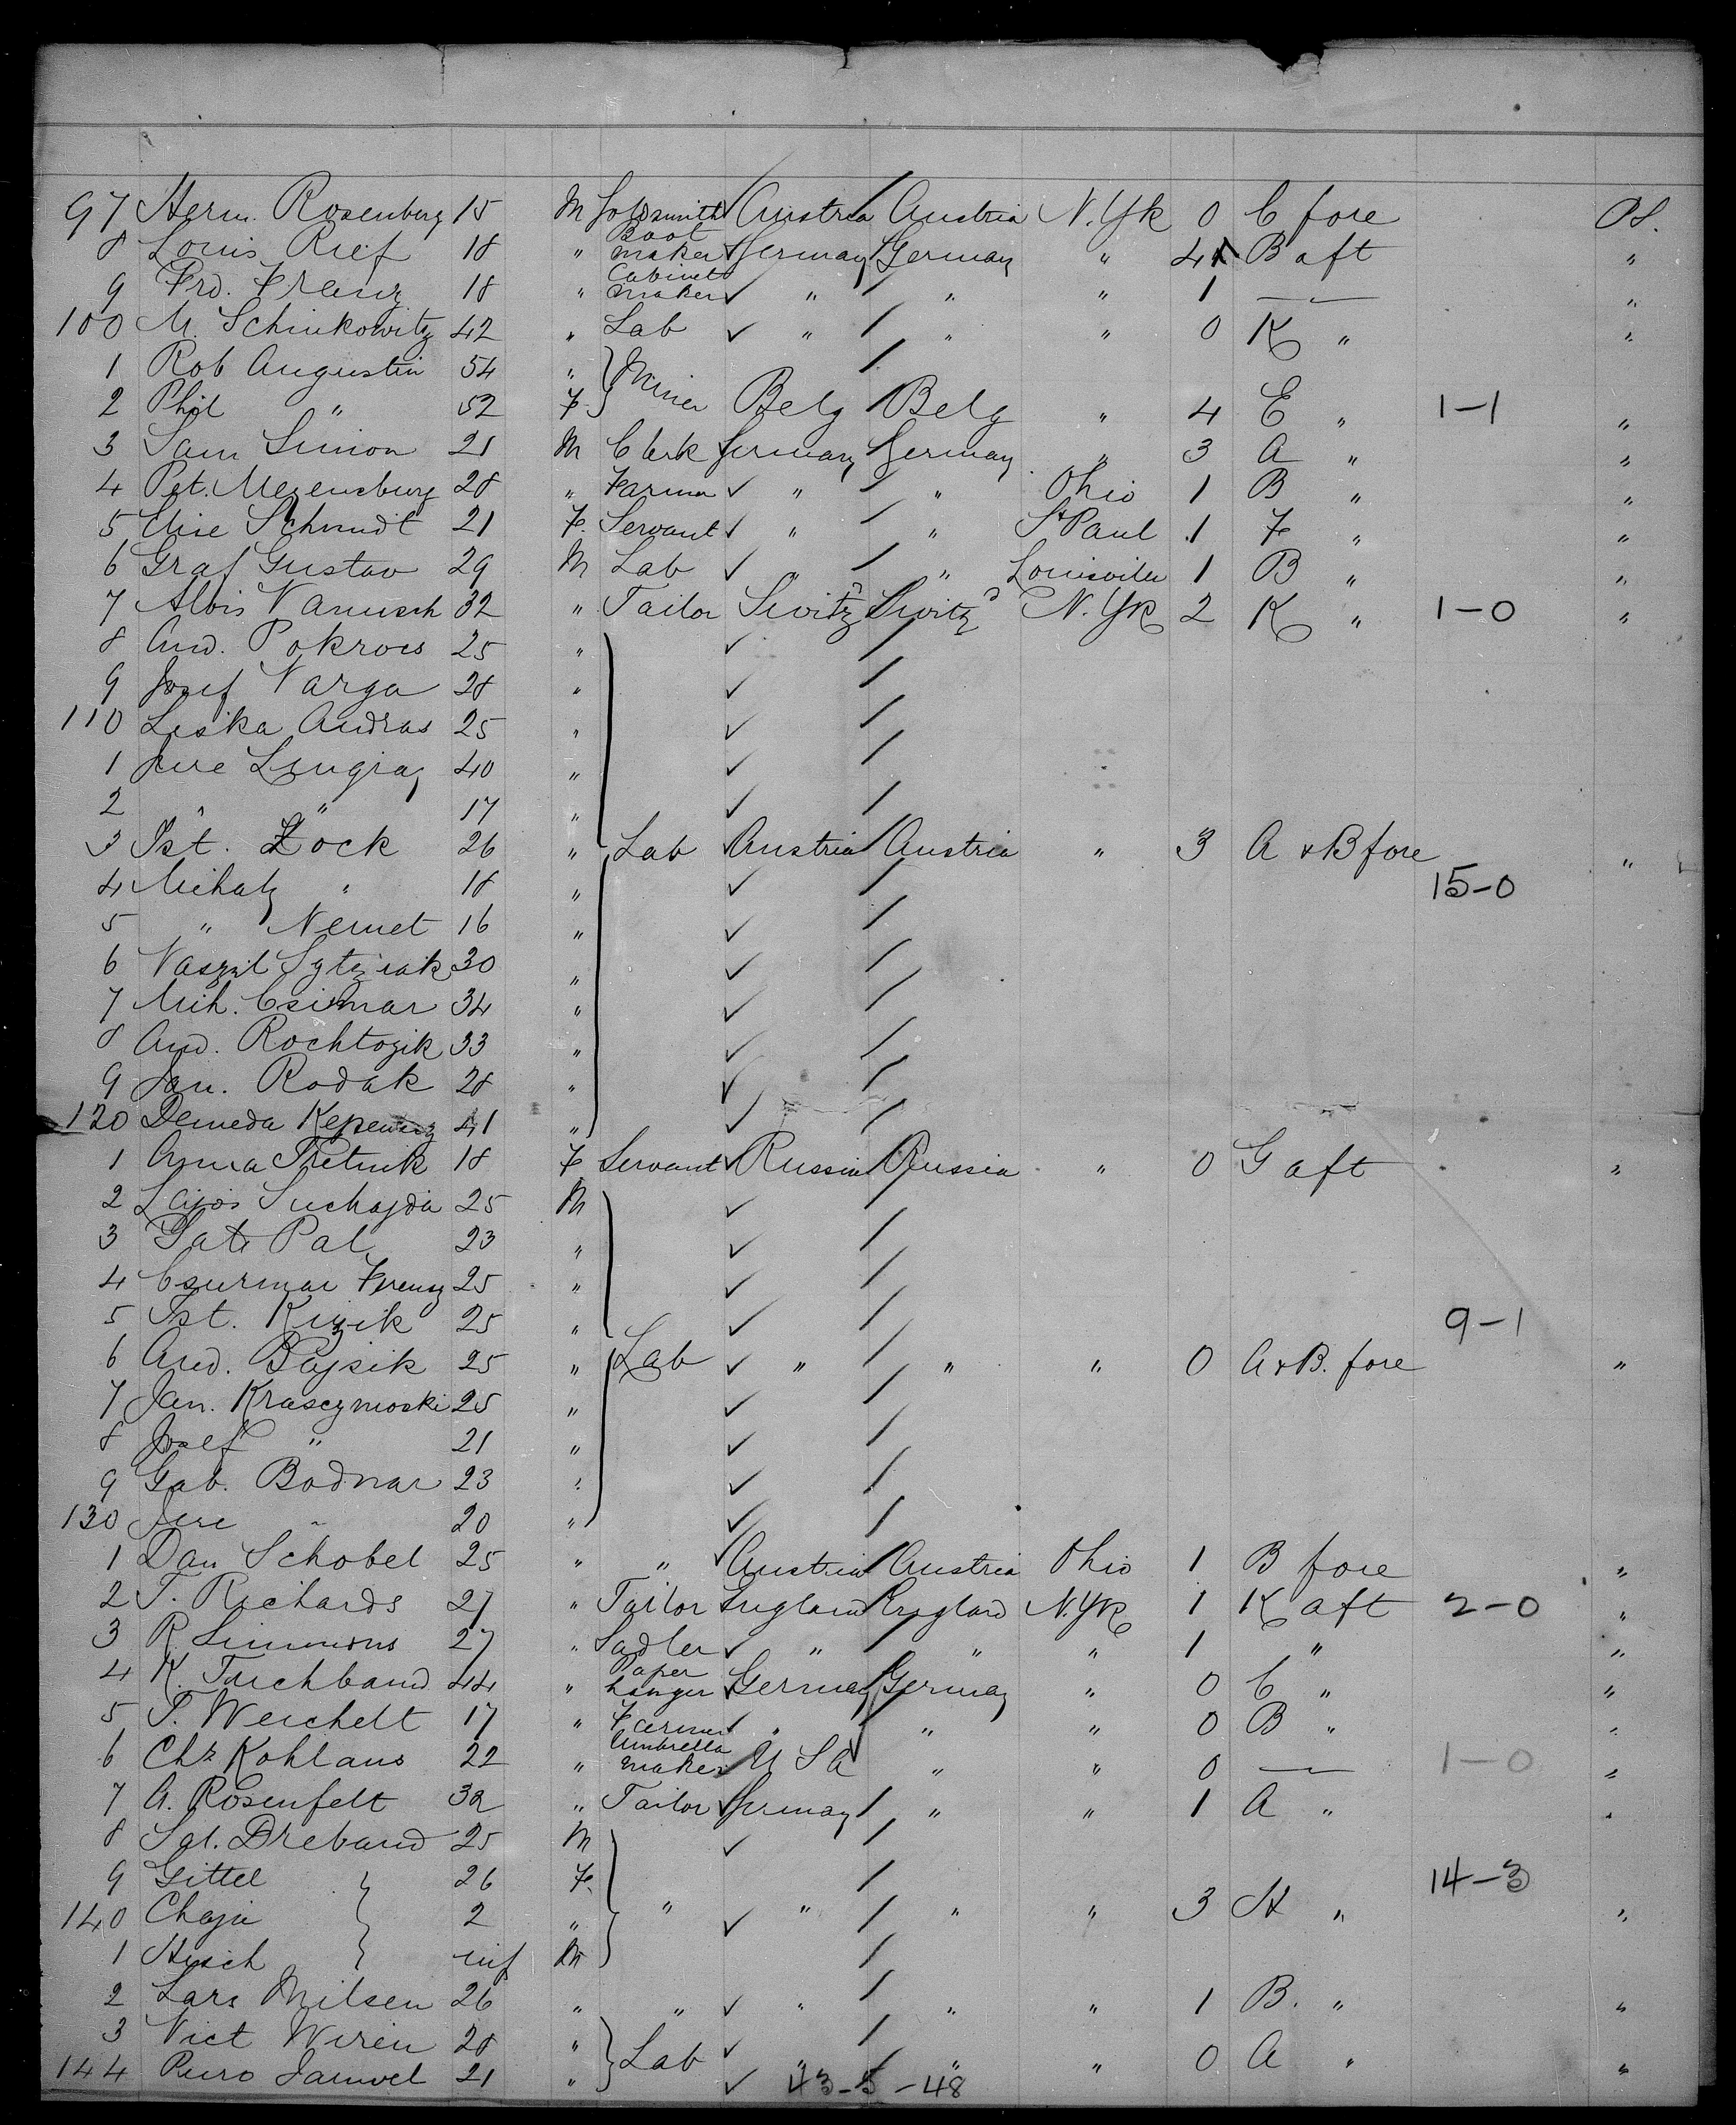 97 Herm. Rosenberg 15 M Goldsmith Austria Austria N. Yk 0 C fore Pl.
8 Louis Rief 18 " Boot maker Germany Germany " 4 B aft "
9 Frd. Franz 18 " Cabinet maker " " " 1 — "
100 M. Schinkowitz 42 " Lab " " " 0 K " "
1 Rob Augustin 54 "
2 Phil " 52 F. Miner Belg Belg " 4 E " 1-1 "
3 Sam Simon 21 M Clerk Germany Germany " 3 A " "
4 Pet. Mezensburg 28 " Farmer " " Ohio 1 B " "
5 Elise Schmidt 21 F. Servant " " St Paul 1 F " "
6 Graf Gustav 29 M Lab " " Louisville 1 B " "
7 Alois Vanusch 32 " Tailor Switz Switz N. Yk 2 K " 1-0 "
8 And. Pokrocs 25 "
9 Josef Varga 28 "
110 Leska Andras 25 "
1 Jure Lengray 40 "
2 " " 17 "
3 Ist. Zock 26 " Lab Austria Austria " 3 A & B fore "
4 Mihaly " 18 " 15-0
5 " Nemet 16 "
6 Vaszil 30 "
7 Mih. Csismar 34 "
8 And. Rochtozik 33 "
9 Jan. Rodak 28 "
120 Demeda 41 "
1 Anna Pretnik 18 F Servant Russia Russia " 0 G aft "
2 Lajos Suchajda 25 M
3 Gate Pal 23 "
4 Csurmar Ferenz 25 "
5 Ist. Kizik 25 " 9-1
6 And. Bajsik 25 " Lab " " " 0 A & B. fore "
7 Jan. Krascymoski 25 "
8 Josef " 21 "
9 Gab. Bodnar 23 "
130 Jure " 20 "
1 Dan Schobel 25 " " Austria Austria Ohio 1 B fore "
2 T. Richards 27 " Tailor England England N. Yk 1 K aft 2-0 "
3 R. Simmons 27 " Sadler " " " 1 " "
4 K. Tuchband 44 " Paper hanger Germany Germany " 0 C " "
5 T. Weichelt 17 " Farmer " " " 0 B " "
6 Chs Kohlaus 22 " Umbrella maker U S A " " 0 — 1-0 "
7 A. Rosenfelt 32 " Tailor Germany " " 1 A " "
8 Sal. Dreband 25 M
9 Gittel 26 F. 14-3
140 Chaja 2 " " " " " 3 H " "
1 Hersch inf M
2 Lars Nilsen 26 " " " " " 1 B. " "
3 Vict Wiren 28 "
144 Puro Samuel 21 " Lab " " " 0 A " "
43-5-48